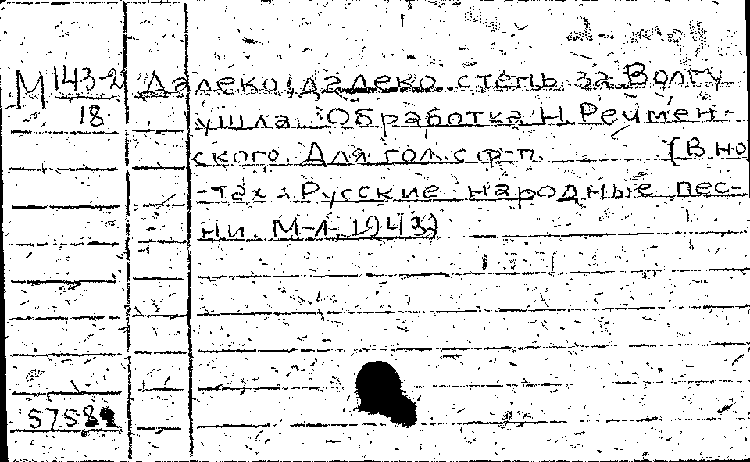 М 143-2 Далеко, далеко степь за Волгу
18 ушла. Обработка Н. Речмен-
ского. Для гол. с ф-п. [В но
-тах: Русские народные пес-
ни. М-Л. 1943]
5758